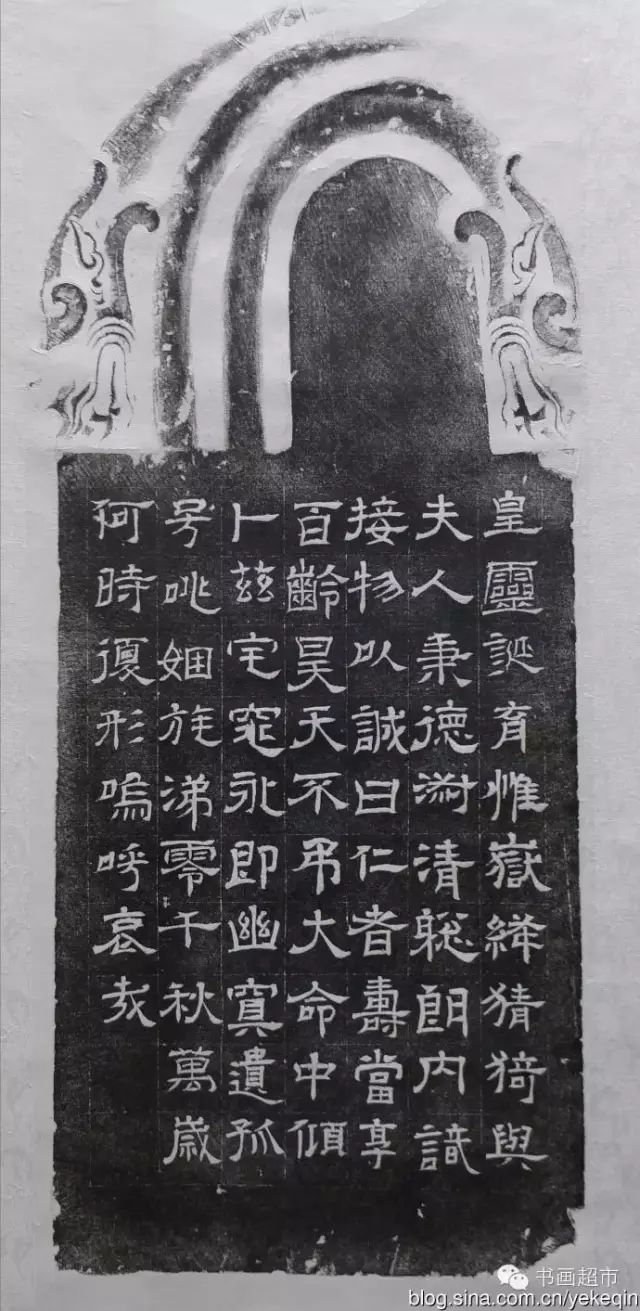 皇靈誕育惟嶽絳猜猗與
夫人秉德淑清聡朗内識
接物以誠曰仁者壽當享
百齡昊天不弔大命中傾
卜茲宅窀永即幽寘遺孤
号咷姻族涕零千秋萬歲
何時復形嗚呼哀哉
书画超市
blog.sina.com.cn/yekeqin